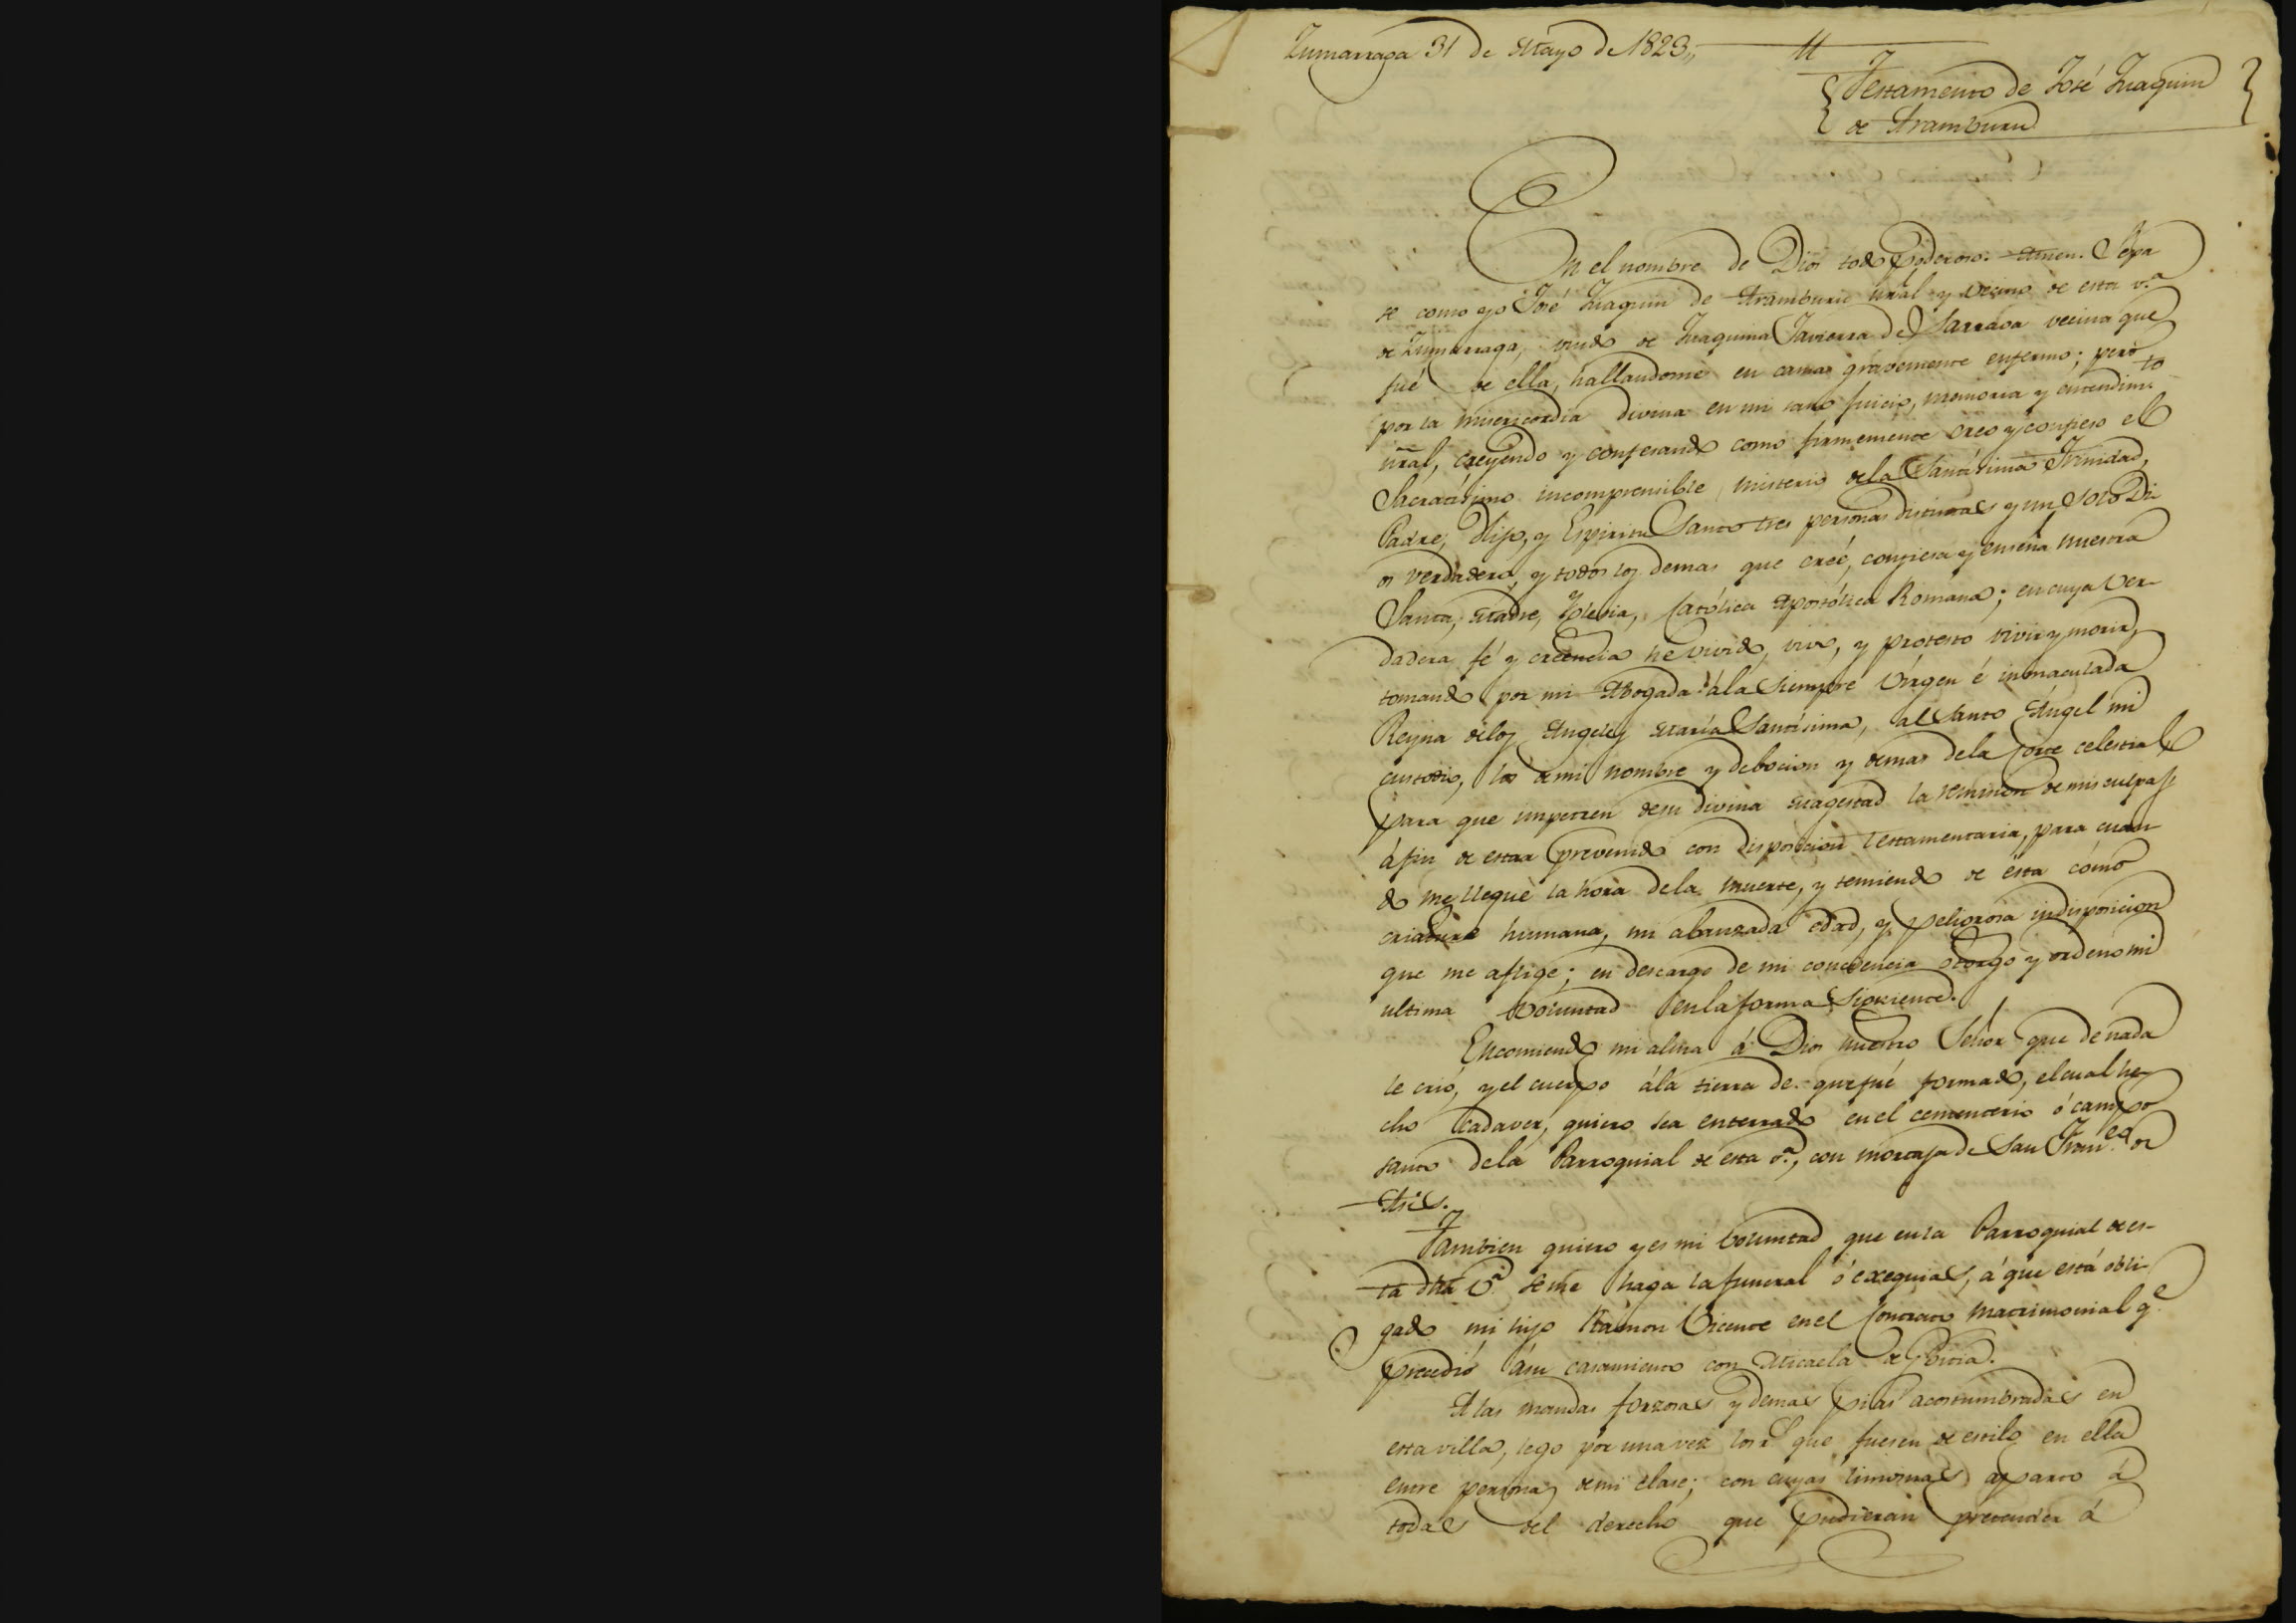 Zumarraga 31 de Mayo de 1823,,
Testamento de José Juaquin
de Aramburu
En el nombre de Dios todo Poderoso: Amen. Sepa
se como yo José Juaquin de Aramburu nral y vecino de esta v.a
de Zumarraga, viudo de Juaquina Javierra de Sarrasa vecina que
fué de ella, hallandome en cama gravemente enfermo; pero
por la misericordia divina en mi sano juicio, memoria y entendim.to
nral, creyendo y confesando como firmemente creo y confieso el
Sacratisimo incomprensible misterio dela Santísima Trinidad,
Padre, Hijo, y Espiritu Santo tres personas distintas y un solo Di
os verdadero, y todos los demas que creé, confiesa y enseña nuestra
Santa, Madre, Iglesia, Católica Apostólica Romana; en cuya ver-
dadera fé y creencia he vivido, vivo, y protesto vivir y morir,
tomando por mi Abogada ála siempre Vírgen é inmaculada
Reyna delos Angeles María Santísima, al Santo Ángel mi
custodio, los de mi nombre y debocion y demas dela Corte celestial,
para que impetren desu divina Magestad la remision de mis culpas
áfin de estar prevenido con disposicion testamentaria, para cuan
do me llegue la hora dela muerte, y temiendo de ésta cómo
criatura humana, mi abanzada edad, y peligrosa indisposicion
que me aflige; en descargo de mi conciencia otorgo y ordeno mi
ultima voluntad en la forma siguiente.
Encomiendo mi alma á Dios nuestro Señor que de nada
le crió, y el cuerpo ála tierra de que fué formado, el cual he-
cho cadaver, quiero sea enterrado en el cementerio ó campo
santo dela Parroquial de esta v.a, con mortaja de San Fran.co de
Asis.
Tambien quiero y es mi voluntad que en la Parroquial de es-
ta dha V.a se me haga la funeral ó exequias, á que está obli-
gado mi hijo Ramon Vicente en el Contrato matrimonial q.e
precedió ásu casamiento con Micaela de
A las mandas forzosas y demas pias acostumbradas en
esta villa, lego por una vez los r.s que fuesen de estilo en ella
entre personas de mi clase; con cuyas limosnas aparto á
todas del derecho que pudieran pretender á